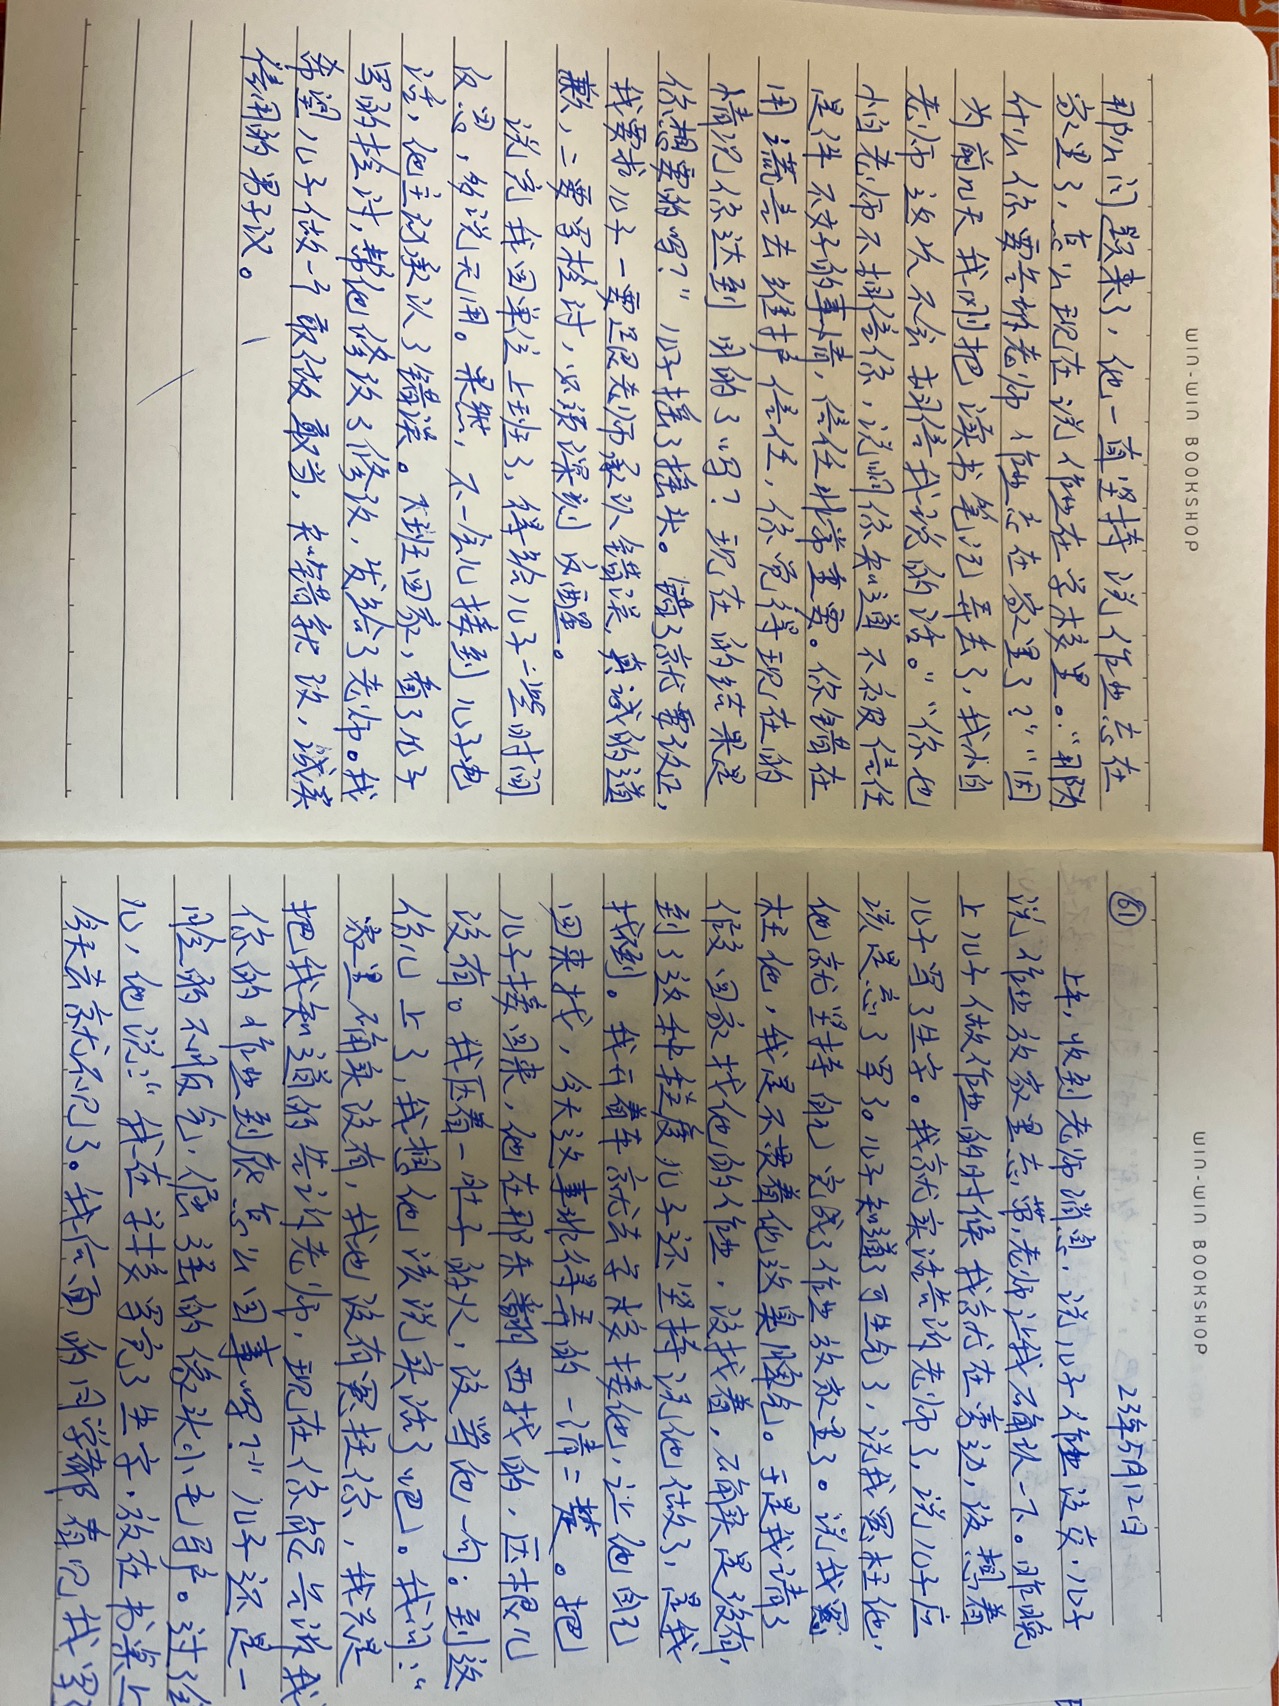 WIN-WIN BOOKSHOP
61 23年5月12日
上午，收到老师消息，说儿子作业没交，儿子
说作业放家里忘带，老师让我确认一下。昨晚
上儿子做作业的时候我就在旁边，没想着
儿子写了生字。我就实话告诉老师了，说儿子应
该是忘了写。儿子知道了可生气了，说我冤枉他，
他就坚持自己完成了作业放家里了。说我冤
枉他，我是不惯着他这臭脾气。于是我请了
假回家找他的作业，没找着，确实是没有，
到了这种程度儿子还坚持说他做了，是我
找到。我开着车就去学校接他，让他自己
回来找，今天这事非得弄的一清二楚。把
儿子接回来，他在那东翻西找的，压根儿
没有。我压着一肚子的火，没当他一句：到这
份儿上了，我想他该说实话了吧。我问：“
家里确实没有，我也没有冤枉你，我只是
把我知道的告诉老师，现在你能告诉我
你的作业到底怎么回事吗？”儿子还是一
脸的不服气，倔强的像头小毛驴。过了会
儿，他说：“我在学校写完了生字，放在书桌上
今天去就不见了。我后面的同学都看见我写
WIN-WIN BOOKSHOP
那么问题来了，他一直坚持说作业忘在
家里了，怎么现在说作业在学校里。“那为
什么你要告诉老师作业忘在家里了？”“因
为前几天我刚把读书笔记弄丢了，我怕
老师这次不会相信我说的话。”“你也
怕老师不相信你，说明你知道不被信任
是件不好的事情，信任非常重要。你错在
用谎言去维护信任，你觉得现在的
情况你达到目的了吗？现在的结果是
你想要的吗？”儿子摇了摇头。错了就要改正，
我要求儿子一要足足老师承认错误，真诚的道
歉，二要写检讨，必须深刻反醒。
说完我回单位上班了，得给儿子一些时间
反思，多说无用。果然，不一会儿接到儿子电
话，他主动承认了错误。下班回家，看了儿子
写的检讨，帮他修改了修改，发给了老师。我
希望儿子做一个敢做敢当，知错就改，诚实
信用的男子汉。